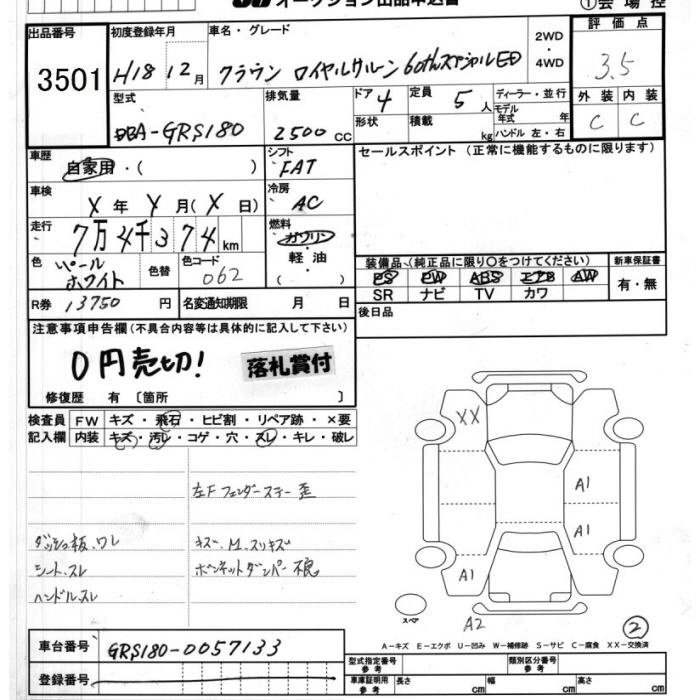 オークション出品申込書
①会場控
出品番号
3501
初度登録年月
H18 12月
車名・グレード
クラウン ロイヤルサルーン 60thスペシャルED
2WD
・
4WD
評価点
3.5
外装 内装
C C
型式
DBA-GRS180
排気量
2500 CC
ドア 4
形状
定員 5 人
積載 kg
ディーラー・並行
モデル年式 年
ハンドル 左・右
車歴
自家用・( )
シフト
FAT
セールスポイント (正常に機能するものに限ります)
車検
X 年 X 月(X 日)
冷房
AC
走行
7万4千374km
燃料
ガソリン
・
軽油
・
( )
色
パール
ホワイト
色替
色コード
062
装備品(純正品に限り○をつけてください)
PS PW ABS エアB AW
SR ナビ TV カワ
新車保証書
有・無
R券 13750 円
名変通知期限 月 日
後日品
注意事項申告欄(不具合内容等は具体的に記入して下さい)
0円売切!
落札賞付
修復歴 有 〔箇所 〕
検査員
記入欄
FW キズ・飛石・ヒビ割・リペア跡・×要
内装 キズ・汚レ・コゲ・穴・スレ・キレ・破レ
左Fフェンダーステー歪
ダッシュ板、ワレ
キズ、M、スリキズ
シート、スレ
ボンネットダンパー不良
ハンドル、スレ
XX
A1
A1
A1
A2
スペア
②
A-キズ E-エクボ U-凹み W-補修跡 S-サビ C-腐食 XX-交換済
車台番号
GRS180-0057133
登録番号
型式指定番号
参考
類別区分番号
参考
車庫証明用
参考
長さ cm
幅 cm
高さ cm